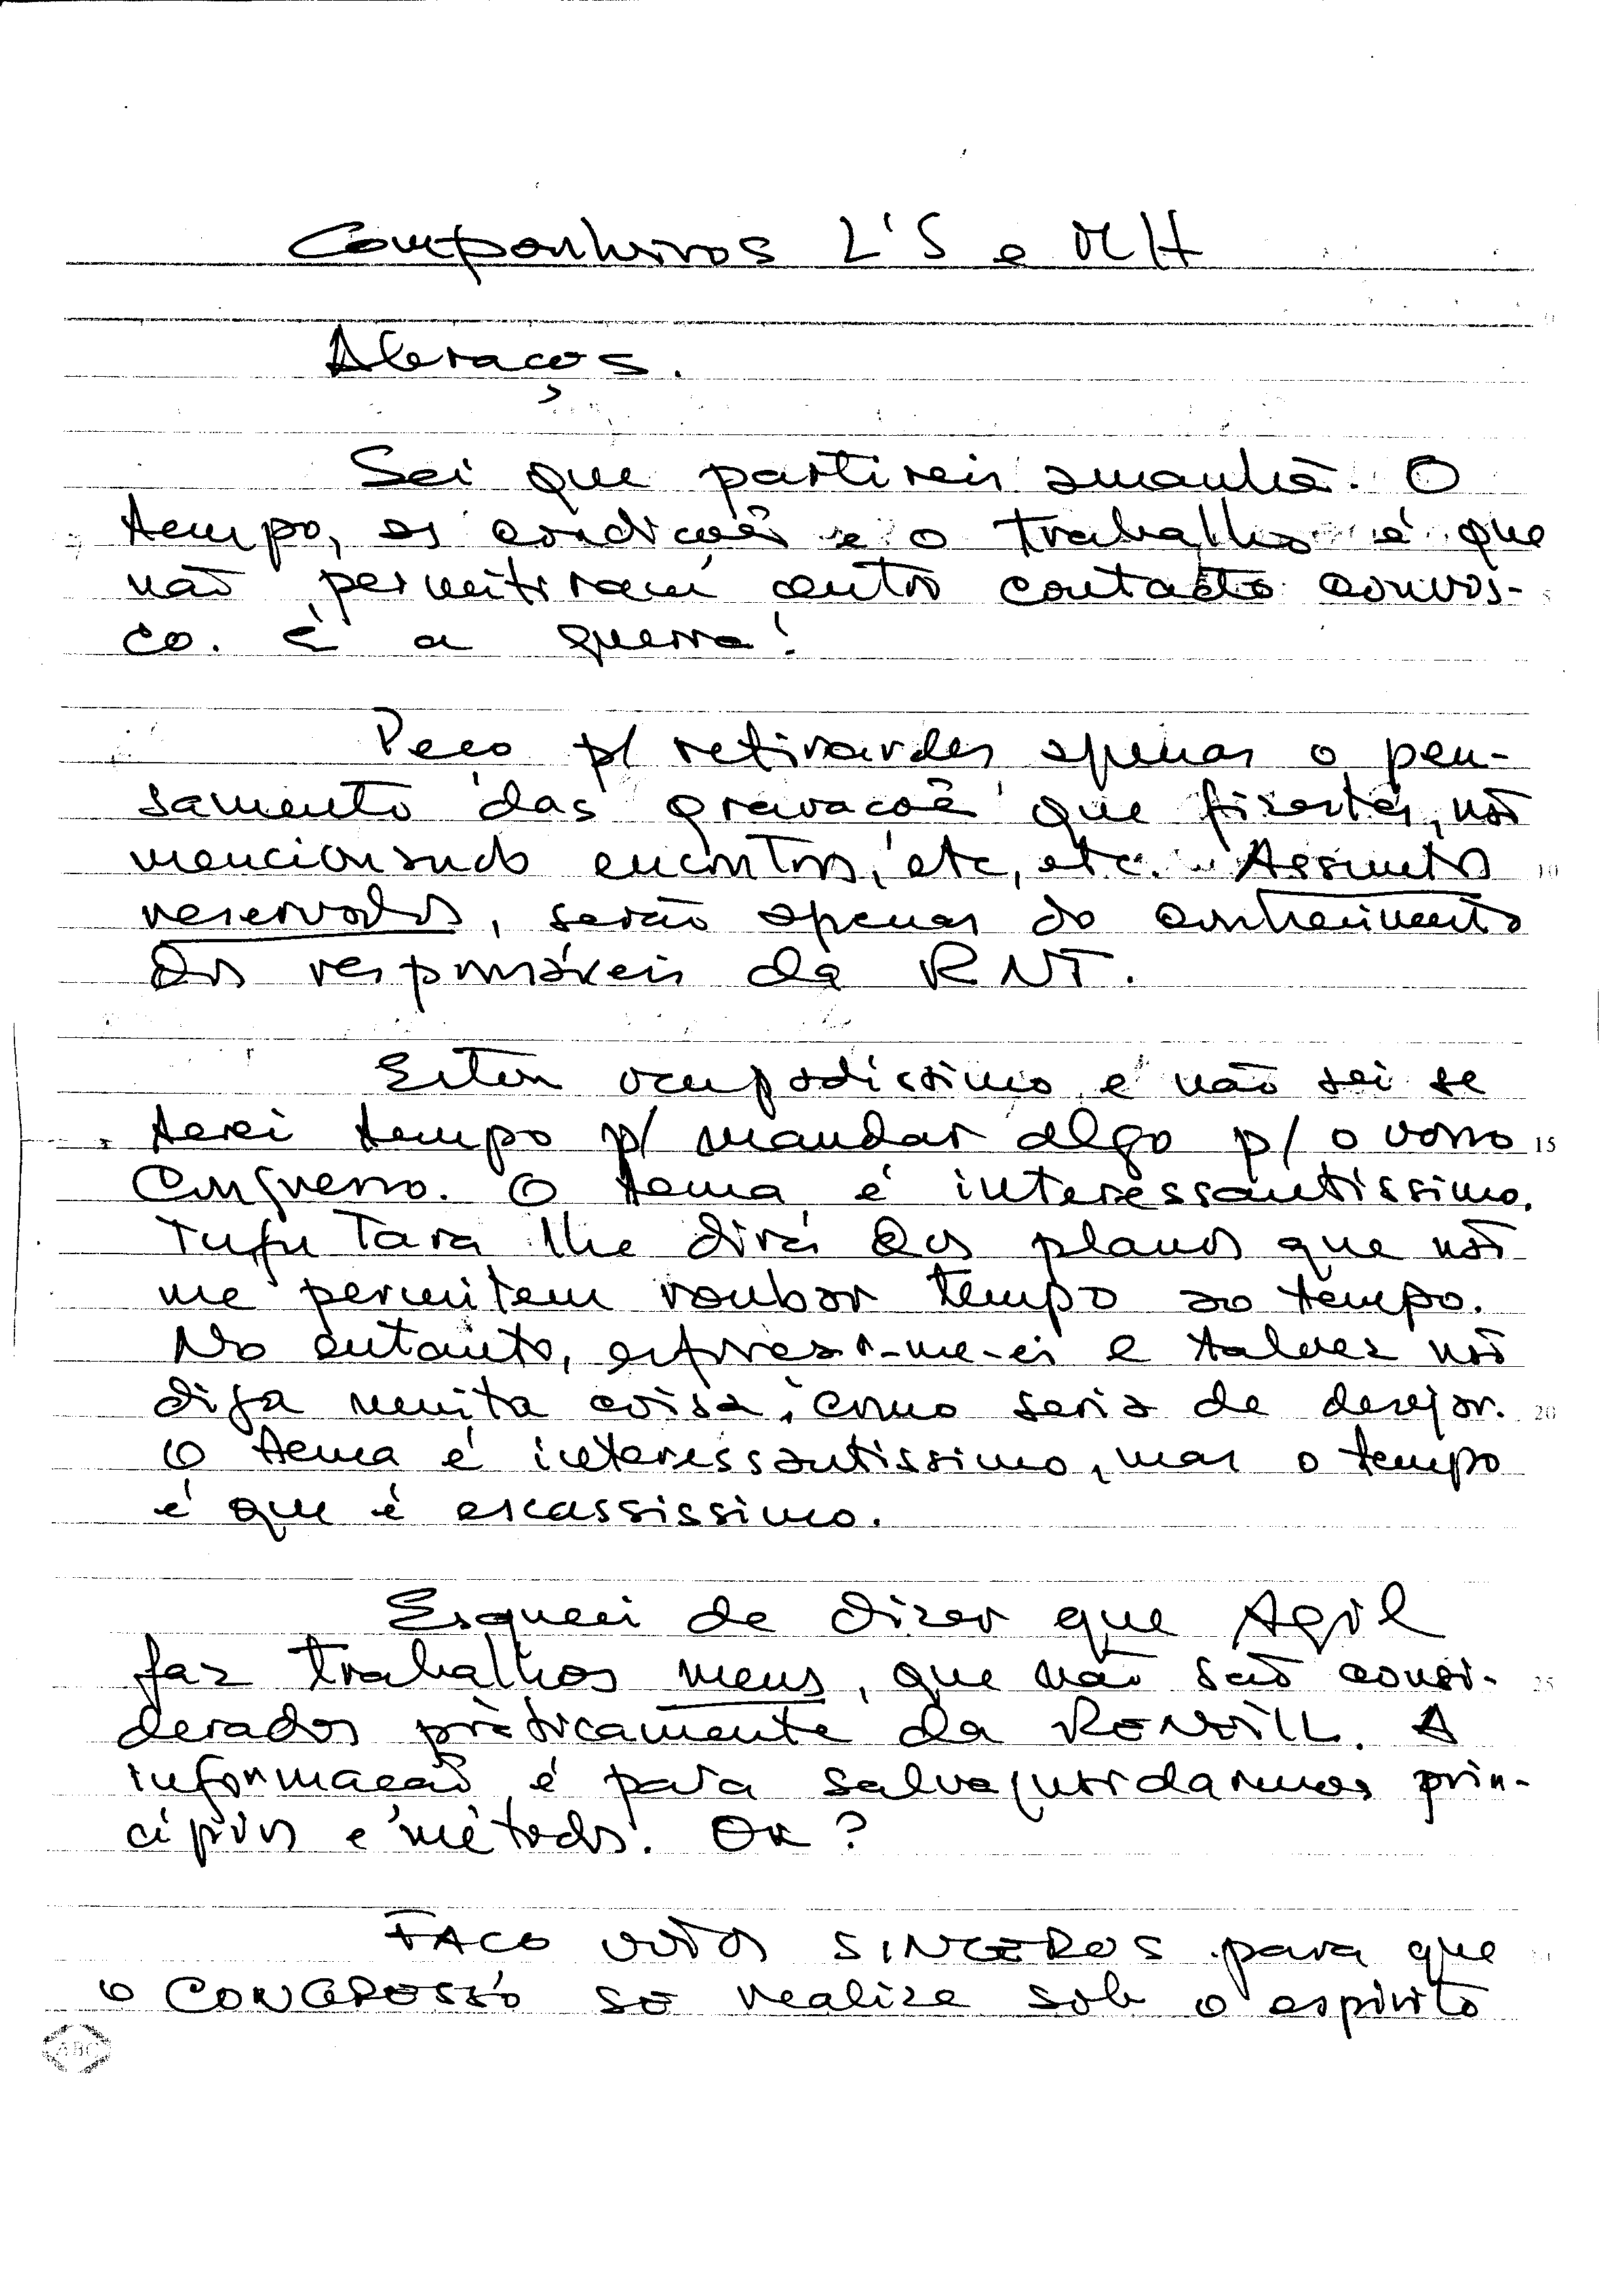 Companheiros L'S e MH
Abraços.
Sei que partireis amanhã. O
tempo, as condições e o trabalho é que
não permitiram outro contacto convos-
co. É a guerra!
Peço p/ retirardes apenas o pen-
samento das gravações que fizestes, não
mencionando encontros, etc, etc. Assuntos
reservados, serão apenas do conhecimento
dos responsáveis da RNT.
Estou ocupadissimo e não sei se
terei tempo p/ mandar algo p/ o vosso
15
Congresso. O tema é interessantissimo.
Tufu Tara lhe dirá dos planos que não
me permitem roubar tempo ao tempo.
No entanto, esforçar-me-ei e talvez não
diga muita coisa, como seria de desejar.
20
O tema é interessantissimo, mas o tempo
é que é escassissimo.
Esqueci de dizer que Agil
faz trabalhos meus, que não são consi-
25
derados pràticamente da
informação é para salvaguardarmos prin-
cípios e métodos. OK?
FAÇO VOTOS SINCEROS para que
o CONGRESSO SE realize sob o espírito
ABC